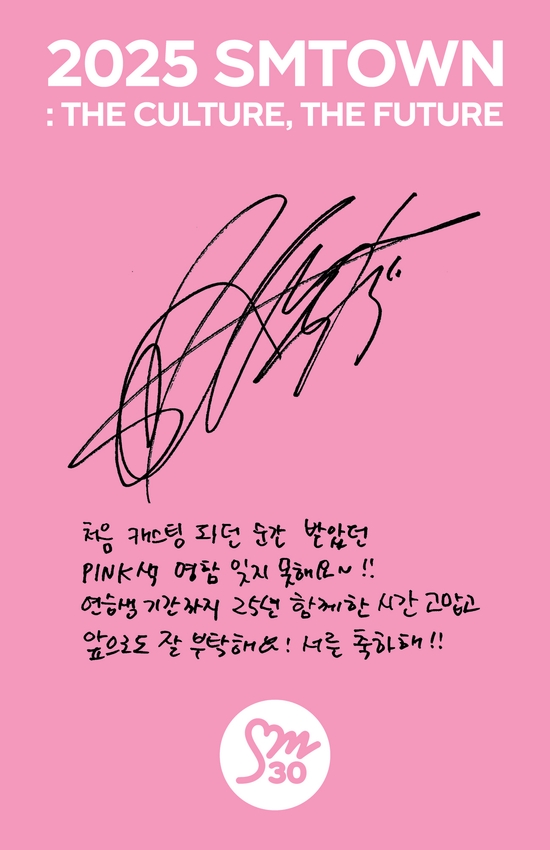 2025 SMTOWN
: THE CULTURE, THE FUTURE
처음 캐스팅 되던 순간 받았던
PINK색 명함 잊지 못해요~!!
연습생 기간까지 25년 함께한 시간 고맙고
앞으로도 잘 부탁해요! 서른 축하해!!
Sm
30